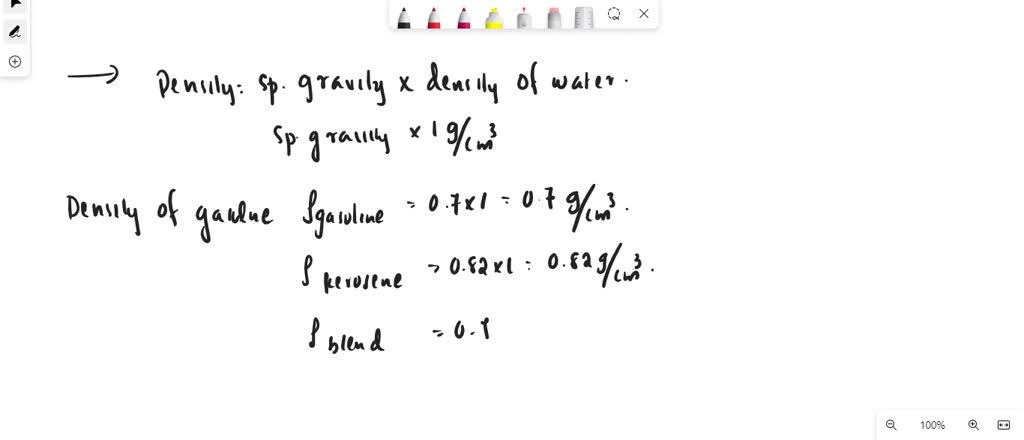 → Density: Sp. gravity x density of water.
Sp. gravity x 1 g/cm³
Density of ρgasoline = 0.7x1 = 0.7 g/cm³.
ρkerosene → 0.82x1 = 0.82 g/cm³.
ρblend = 0.
100%